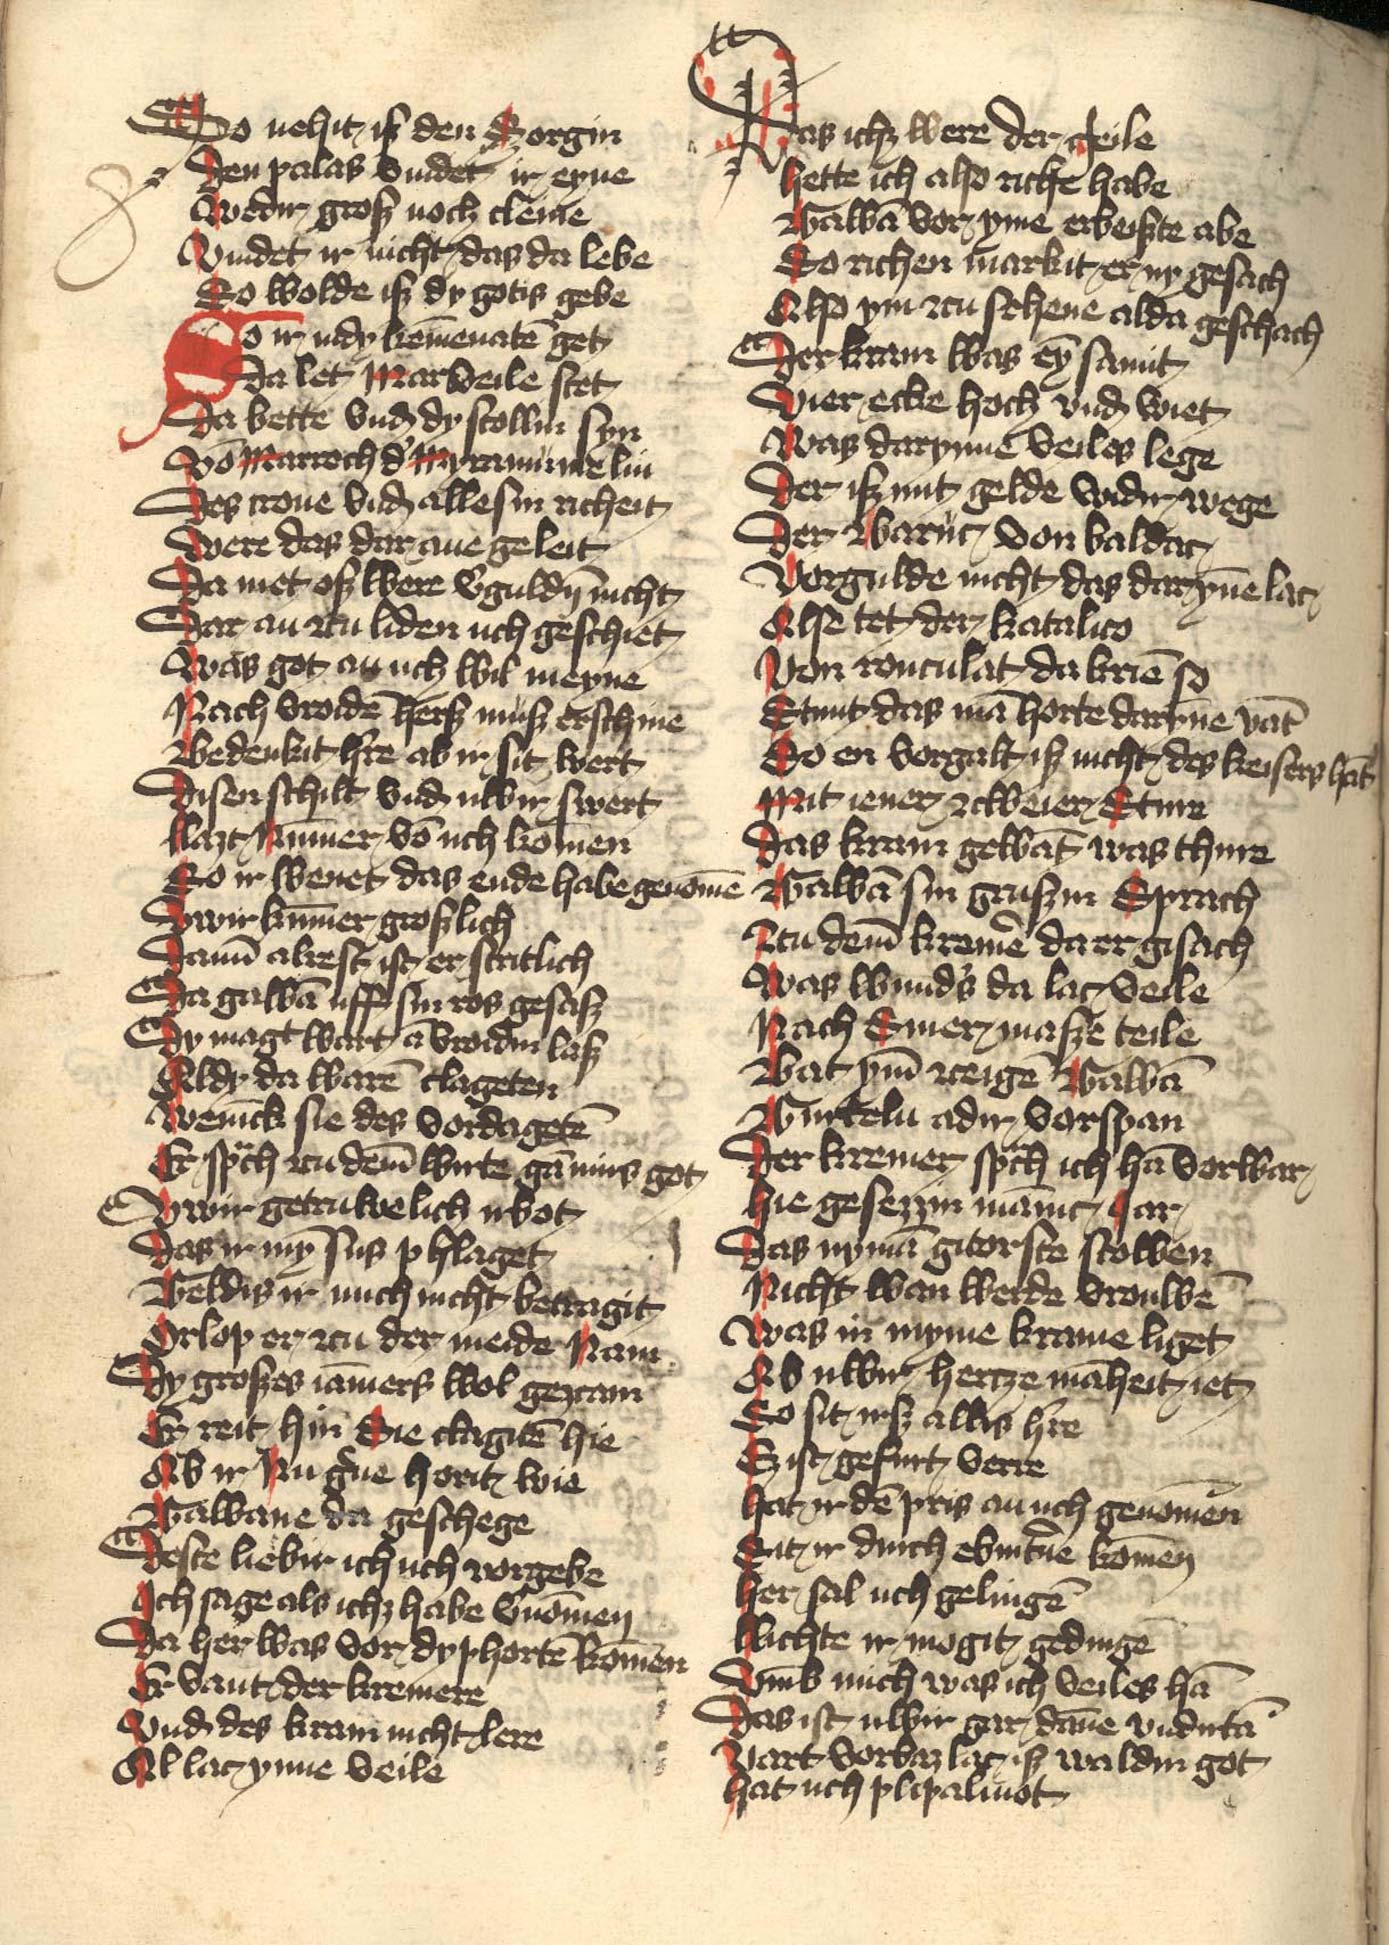 So nehit iß den Sorgin
Den palas vindet ir eyne
Wedir groß noch cleine
Vindet ir nicht das da lebe
So wolde iß dy gotis gebe
So ir indy kēmenatē get
Da let Marveile stet
Da bette vnd dy stollin syn
Vō Marroch d' Myramūmelin
Des crone vnd alle sin richeit
Were das dar ane geleit
Da met oß were v'guldin nicht
Dar an zcu liden uch geschiet
Was got an uch wil meyne
Nach vroidē herß muß erschine
Bedenkit h're ab ir sit wert
Disen schilt vnd uwir swert
Lazt Nimmer vō uch komen
So ir wenet das ende habe genomē
Uwir kūmer großlich
Dānn alrest ist er stritlich
Da gawā uff sin ros gesaß
Dy magt wart ā vroidin laß
Aldy da warē clageten
Wenick sie des vordagetē
Er sp'ch zcu dem wirte gā mirs got
Uwir getruwelich irbot
Das ir mȳ sus phlaget
Geldis ir mich nicht betragit
Orlop er zcu der meide Nam
Dy großes iāmers wol gezcam
Er reit hin Sie clagitē hie
Ab ir Nu g'ne horit wie
Gawane da geschege
Deste liebir ich uch vorgebe
Ich sage als ichz habe v'nōmen
Da her was vor dy phortē komen
Er vant der kremere
Vnd des kram nicht lere
Al lac ynne veile
Das ichz were der geile
Hette ich also riche habe
Gawā vor yme erbeiste abe
So richen markit er ny gesach
Also ym zcu sehene alda geschach
Der kram was eȳ samit
Vier ecke hoch vnd wiet
Was darynne veiles lege
Der iß mit gelde widir wege
Der Baruc von baldac
Vorgulde nicht das dar yne lac
Alse tet der katalico
Von ronculat da kriē so
Stunt das mā horte darine vāt
So en vorgalt iß nicht des keisers hāt
Mit iener zcweier Sture
Das kram gewāt was thure
Gawā sin grußin Sprach
Zcu dem kremē da er gisach
Was wund's da lac veile
Nach Siner maße teile
Bat ym zceigē Gawā
Gurteln adir vorspan
Der kremer sp'ch ich hā vorwar
Hie gesezzin mānic Jar
Das nymā gitorste scowen
Nicht wan werde vrouwē
Was in myme krame liget
Ab uwir hertze māheit iet
So sit irß allis h're
Ez ist gefurt verre
Hat ir dē pris an uch genōmen
Sit ir durch ebint'ne komen
Her sal uch gelingē
Lichte ir mogit gedinge
Vmb mich was ich veiles hā
Das ist uwir gar dāne vndirtā
Vart vorbaz lac iß waldin got
Hat uch plipalinot